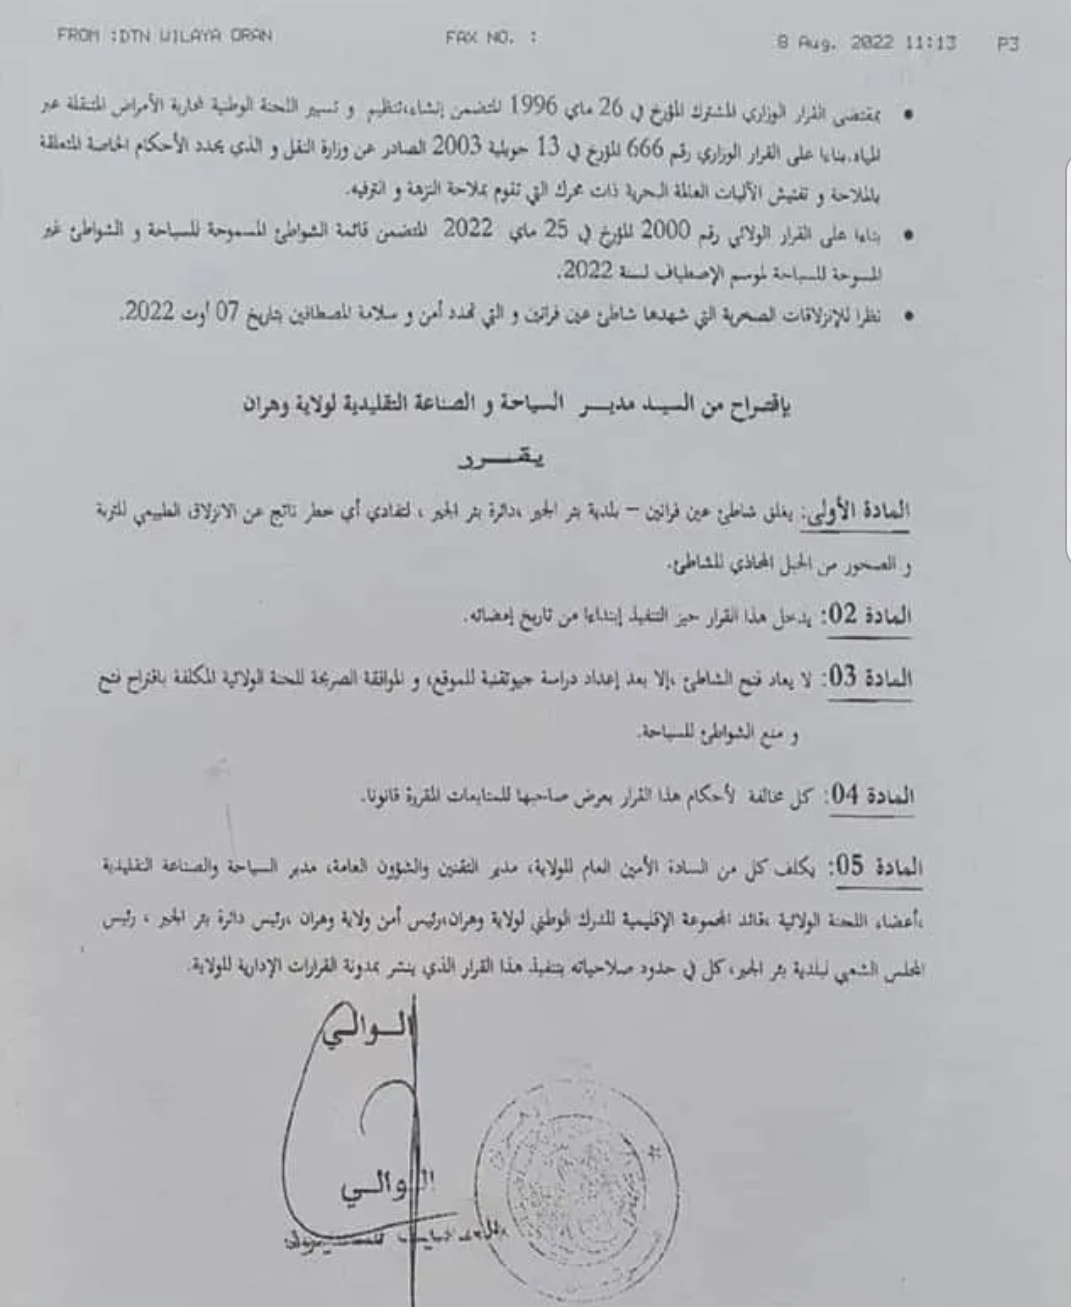 FROM :DTN WILAYA ORAN FAX NO. : 8 Aug. 2022 11:13 P3
• بمقتضى القرار الوزاري المشترك المؤرخ في 26 ماي 1996 المتضمن إنشاء،تنظيم و تسيير اللجنة الوطنية لمحاربة الأمراض المتنقلة عبر
المياه.بناءا على القرار الوزاري رقم 666 المؤرخ في 13 جويلية 2003 الصادر عن وزارة النقل و الذي يحدد الأحكام الخاصة المتعلقة
بالملاحة و تفتيش الآليات العائمة البحرية ذات محرك التي تقوم بملاحة النزهة و الترفيه.
• بناءا على القرار الولائي رقم 2000 المؤرخ في 25 ماي 2022 المتضمن قائمة الشواطئ المسموحة للسباحة و الشواطئ غير
المسموحة للسباحة لموسم الإصطياف لسنة 2022.
• نظرا للإنزلاقات الصخرية التي شهدها شاطئ عين فرانين و التي تهدد أمن و سلامة المصطافين بتاريخ 07 أوت 2022.
بإقتراح من السيد مديـر السياحة و الصناعة التقليدية لولاية وهران
يقـــرر
المادة الأولى: يغلق شاطئ عين فرانين – بلدية بئر الجير ،دائرة بئر الجير ، لتفادي أي خطر ناتج عن الانزلاق الطبيعي للتربة
و الصخور من الجبل المحاذي للشاطئ.
المادة 02: يدخل هذا القرار حيز التنفيذ إبتداءا من تاريخ إمضائه.
المادة 03: لا يعاد فتح الشاطئ ،إلا بعد إعداد دراسة جيوتقنية للموقع، و الموافقة الصريحة للجنة الولائية المكلفة باقتراح فتح
و منع الشواطئ للسباحة.
المادة 04: كل مخالفة لأحكام هذا القرار يعرض صاحبها للمتابعات المقررة قانونا.
المادة 05: يكلف كل من السادة الأمين العام للولاية، مدير التقنين والشؤون العامة، مدير السياحة والصناعة التقليدية
،أعضاء اللجنة الولائية ،قائد المجموعة الإقليمية للدرك الوطني لولاية وهران،رئيس أمن ولاية وهران ،رئيس دائرة بئر الجير ، رئيس
المجلس الشعبي لبلدية بئر الجير، كل في حدود صلاحياته بتنفيذ هذا القرار الذي ينشر بمدونة القرارات الإدارية للولاية.
الـوالي
الوالـي